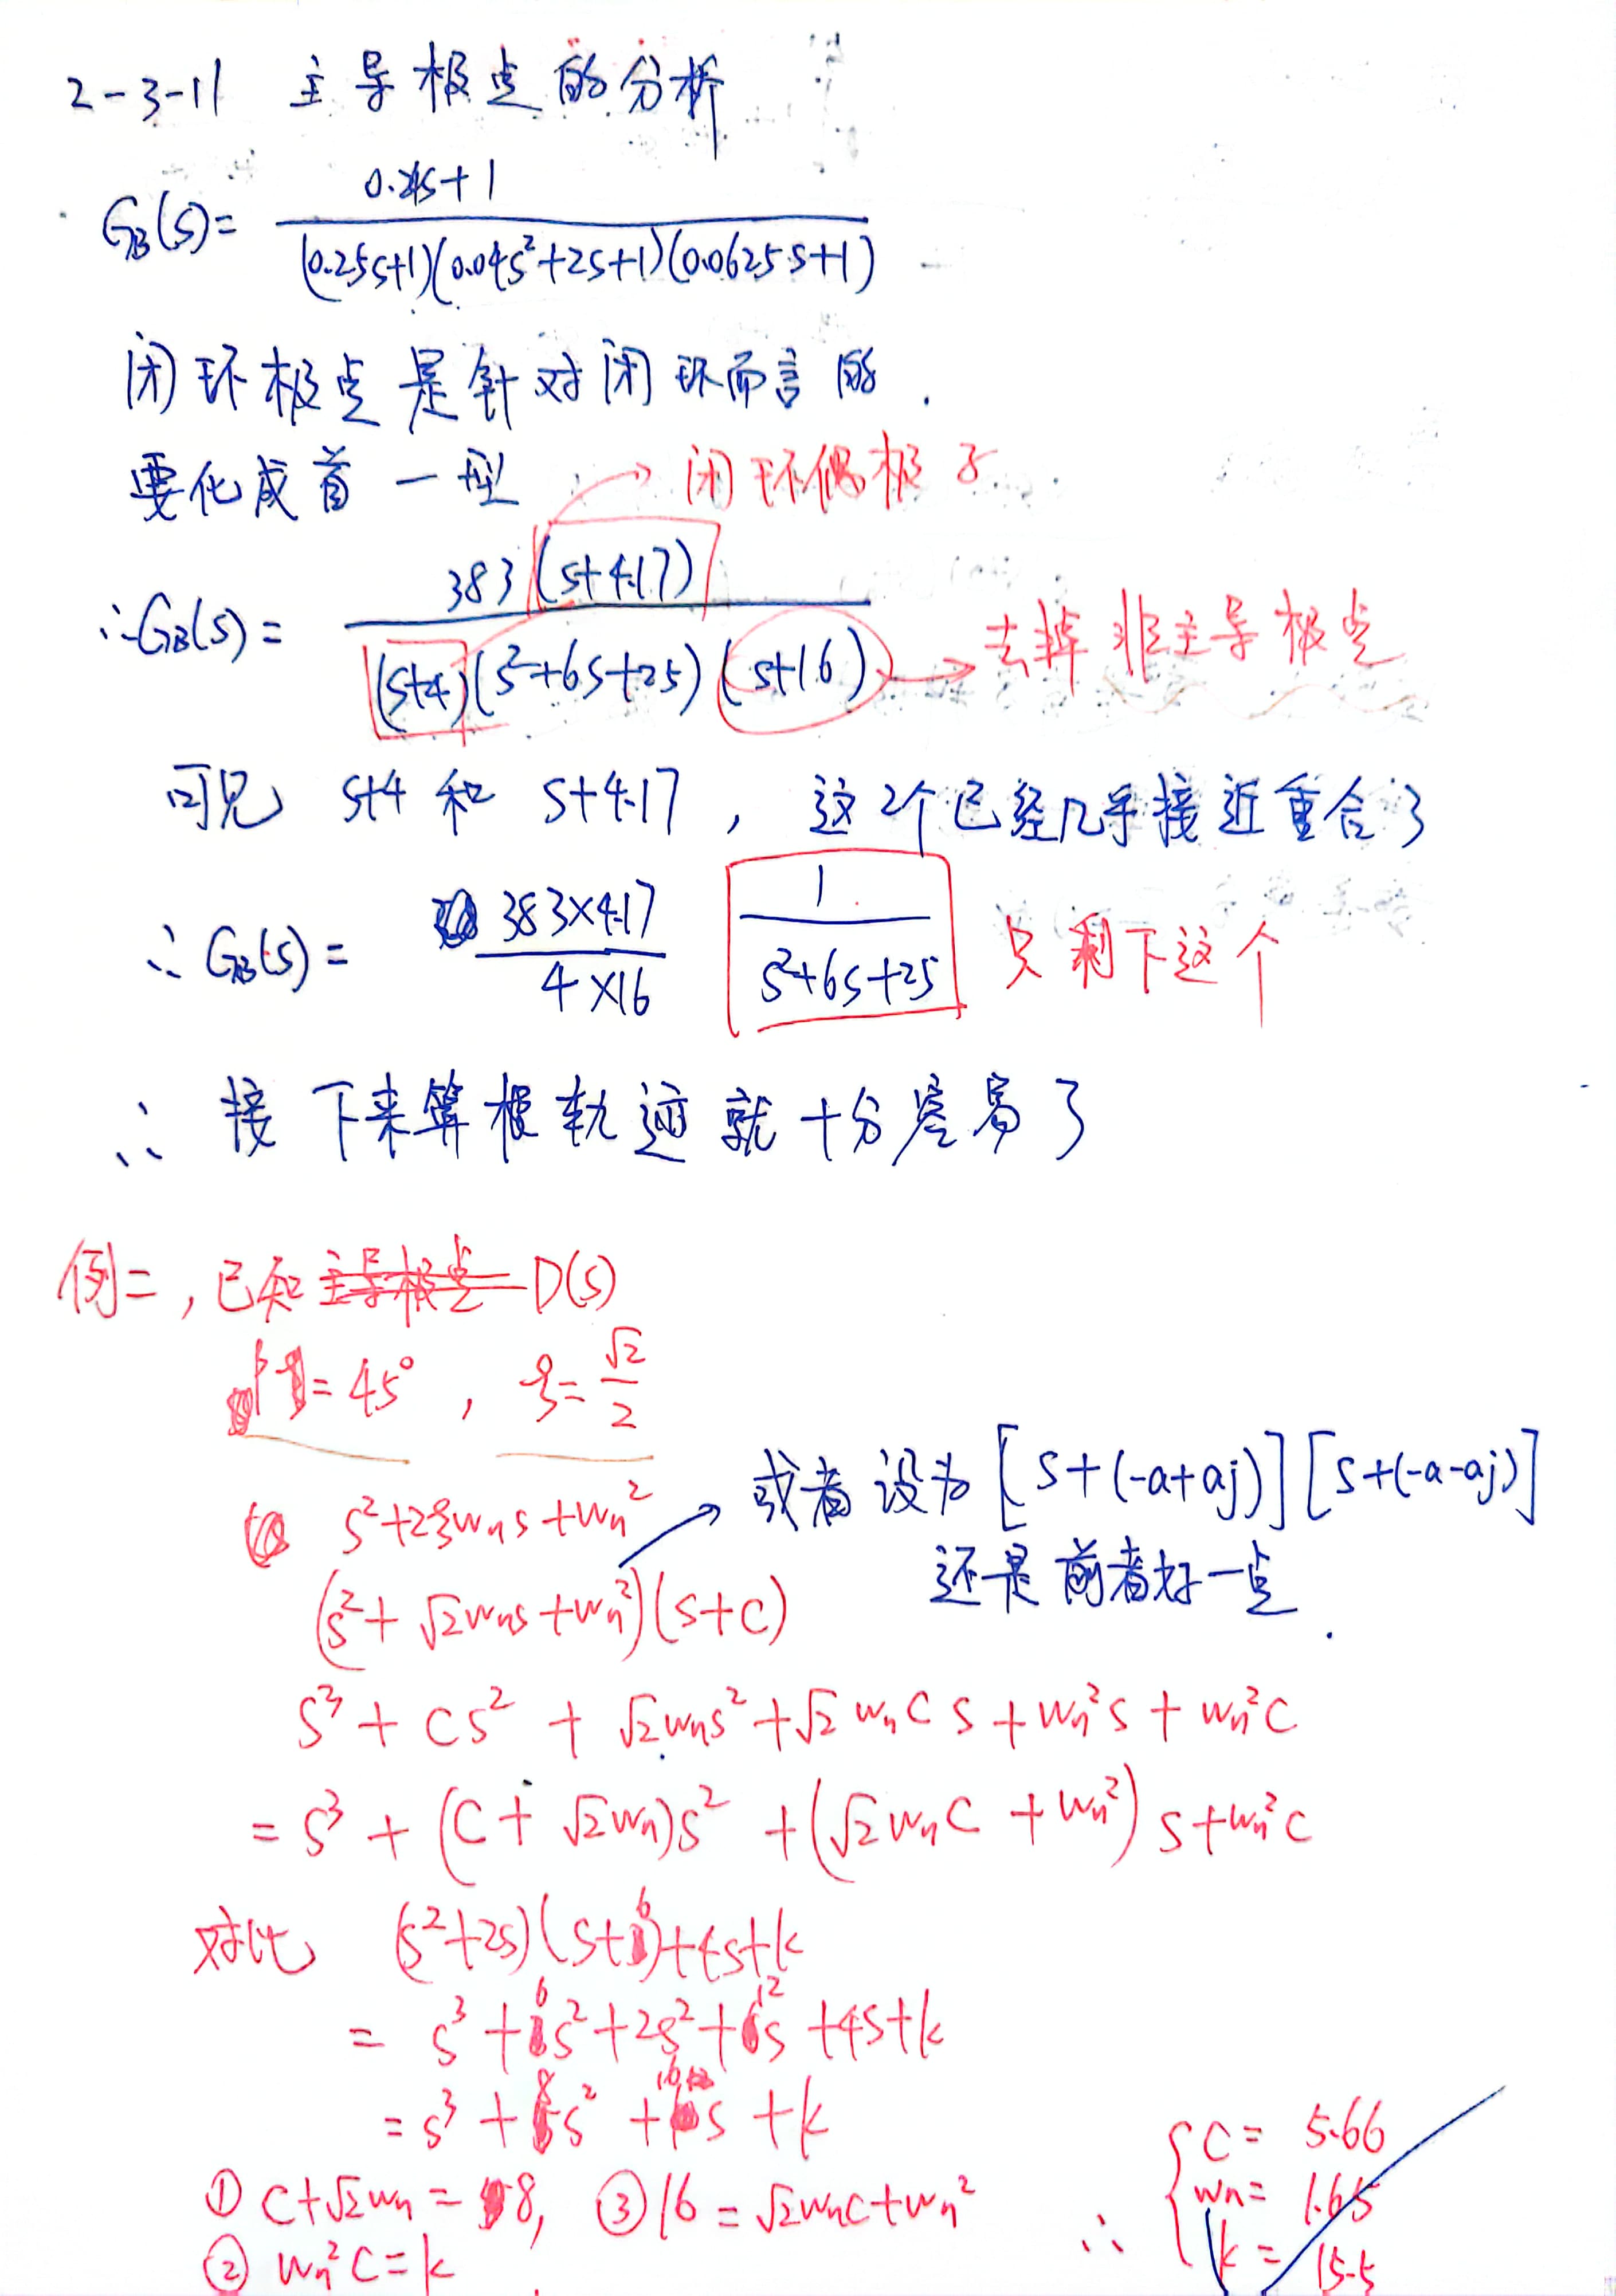 2-3-11 主导极点的分析
G_B(s)= \frac{0.24s+1}{(0.25s+1)(0.04s^2+2s+1)(0.0625s+1)}
闭环极点是针对闭环而言的.
要化成首一型 → 闭环偶极子
∴G_B(s)= \frac{383(s+4.17)}{(s+4)(s^2+6s+25)(s+16)} → 去掉非主导极点
可见 s+4 和 s+4.17, 这2个已经几乎接近重合了
∴ G_B(s)= \frac{383×4.17}{4×16} \frac{1}{s^2+6s+25} 只剩下这个
∴ 接下来算根轨迹就十分容易了
例二, 已知主导极点 D(s)
= 45°, ξ= \frac{√2}{2}
s^2+2ξw_n s+w_n^2 → 或者设为 [s+(-a+aj)][s+(-a-aj)]
还是前者好一点.
(s^2+√2w_n s+w_n^2)(s+c)
s^3 + cs^2 + √2w_n s^2+√2 w_n c s + w_n^2 s + w_n^2 c
= s^3 + (c+√2w_n)s^2 +(√2 w_n c + w_n^2) s+w_n^2 c
对比 (s^2+2s)(s+6)+4s+k
= s^3 +6s^2+2s^2+12s +4s+k
= s^3 + 8s^2 +16s + k
① c+√2w_n = 8, ③ 16 = √2w_n c+w_n^2
② w_n^2 c=k
∴ { c= 5.66
w_n= 1.65
k = 15.5